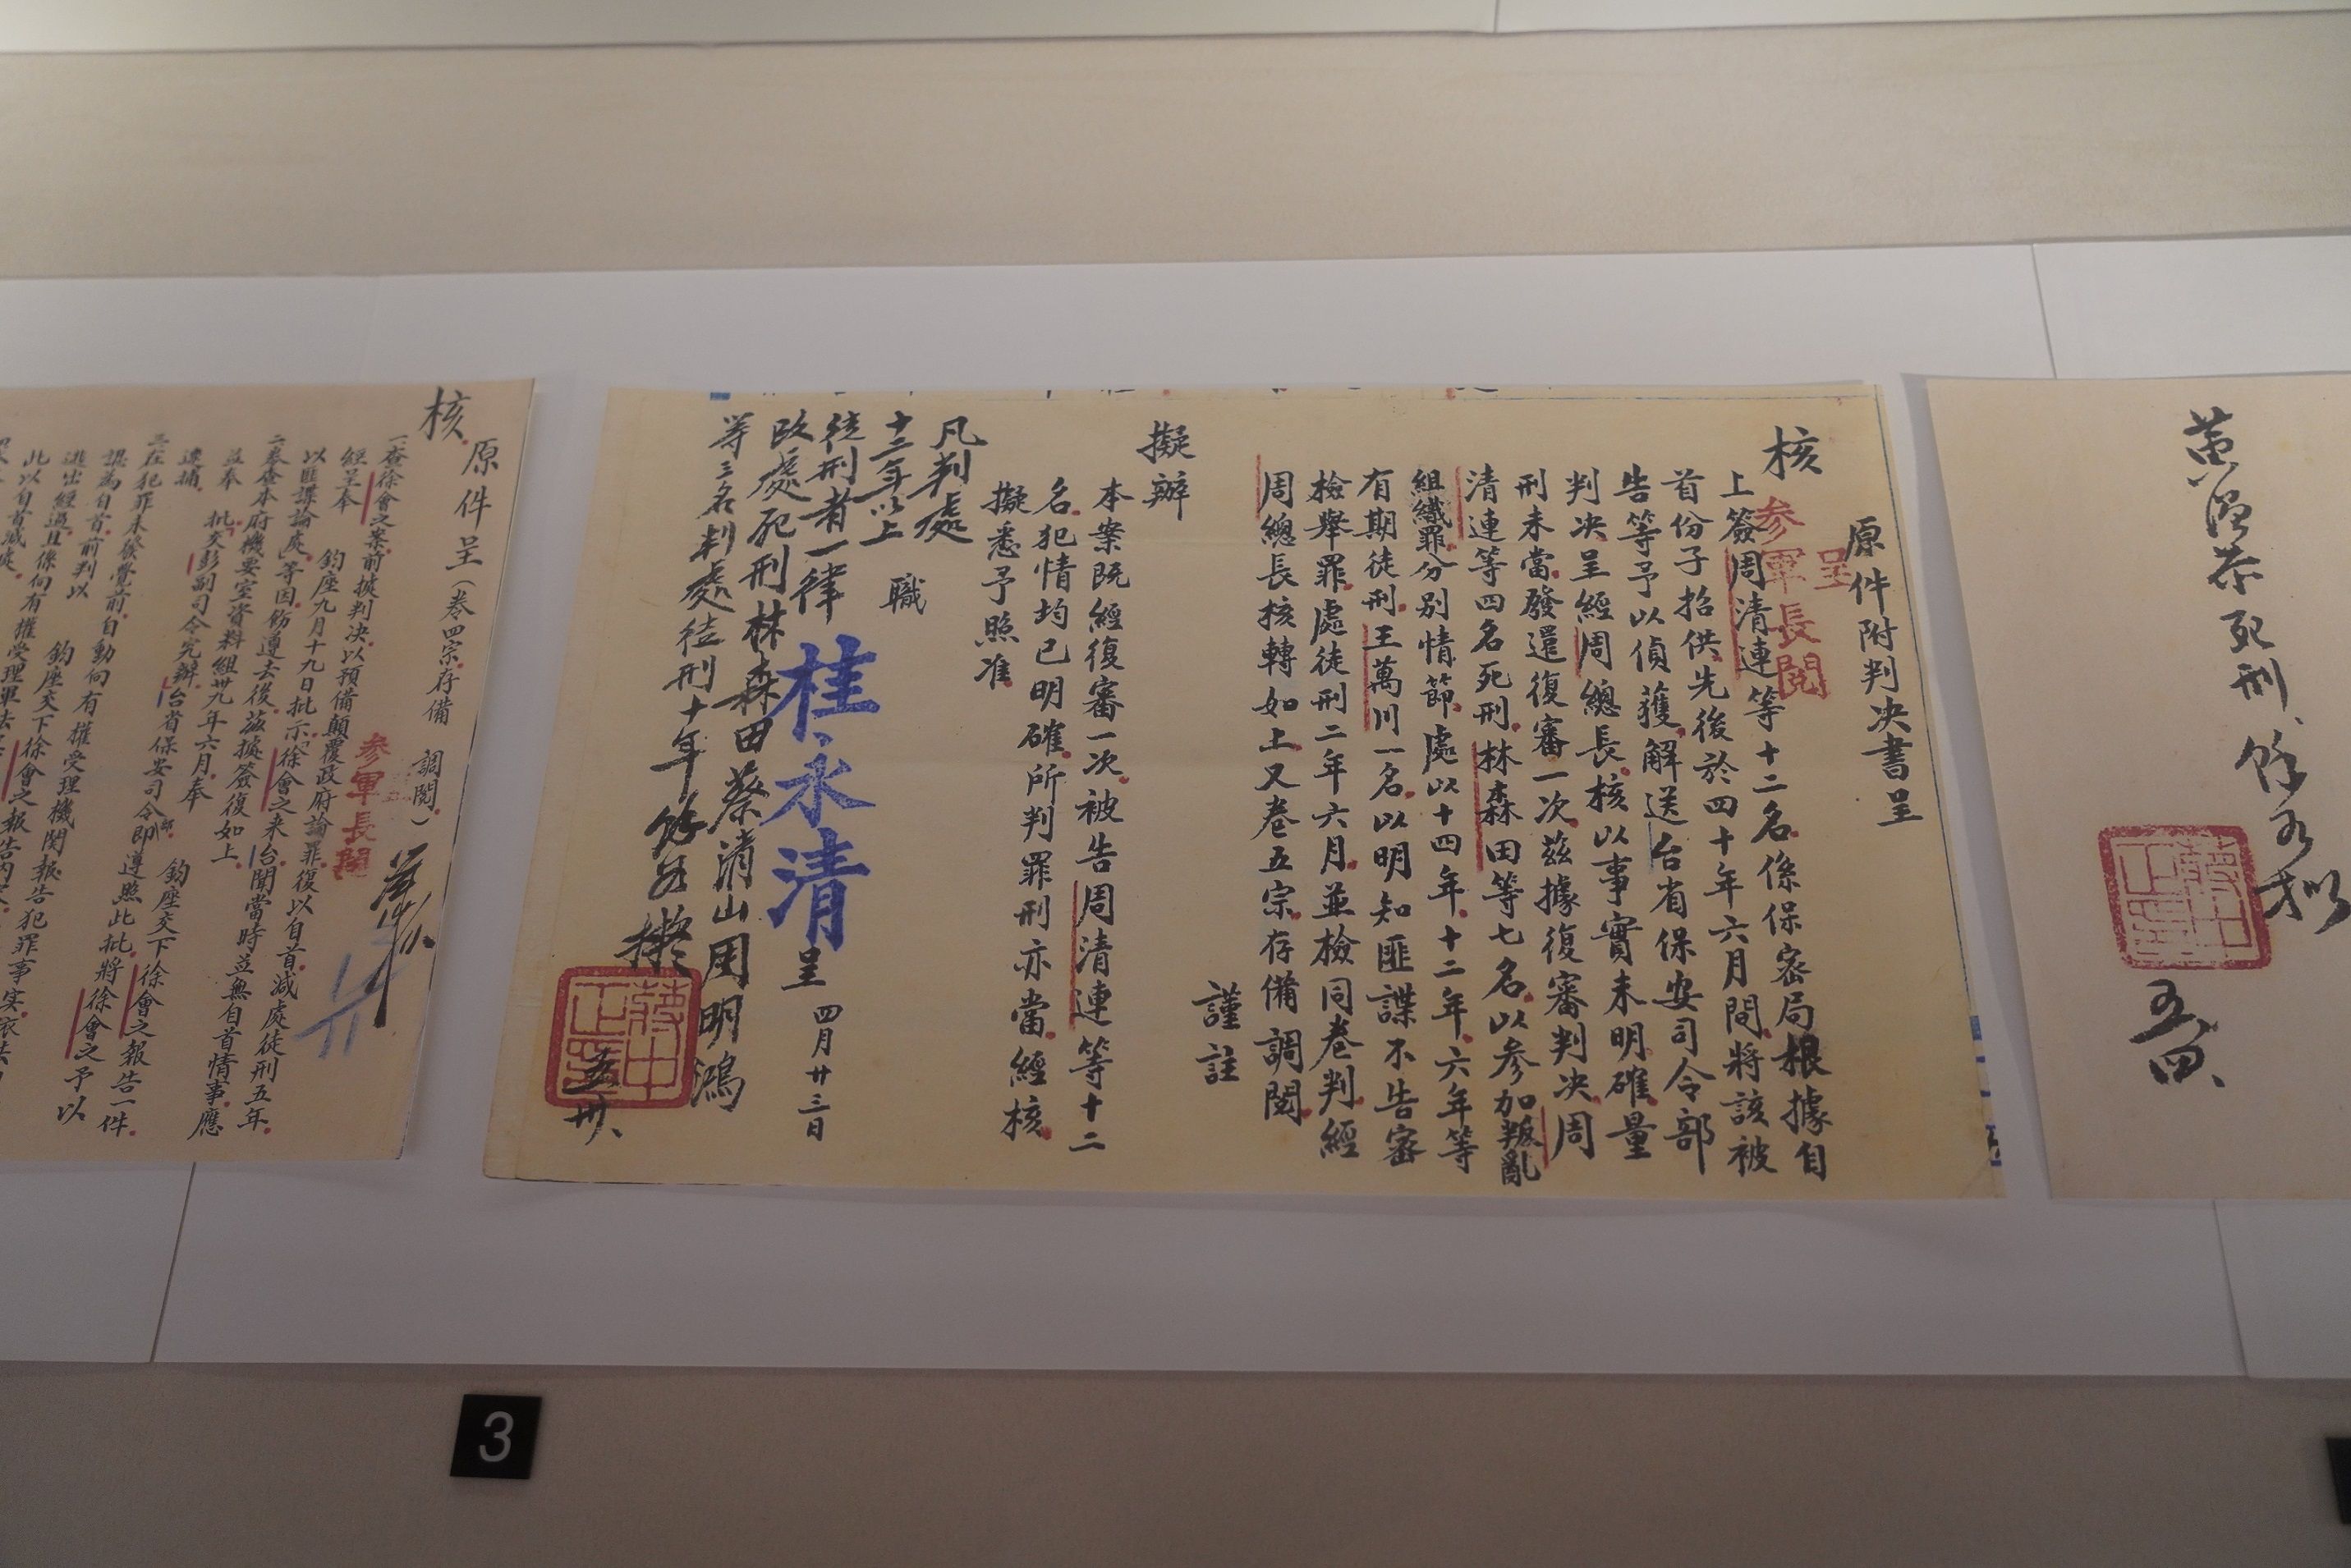 黃溫恭死刑、餘如擬
五四、
蔣中正印
原件附判決書呈
呈
參軍長閱
核
上簽周清連等十二名係保密局根據自
首份子招供先後於四十年六月間將該被
告等予以偵獲解送台省保安司令部
判決呈經周總長核以事實未明確量
刑未當發還復審一次茲據復審判決周
清連等四名死刑林森田等七名以參加叛亂
組織罪分別情節處以十四年十二年六年等
有期徒刑王萬川一名以明知匪諜不告密
檢舉罪處徒刑二年六月並檢同卷判經
周總長核轉如上又卷五宗存備調閱
謹註
擬辦
本案既經復審一次被告周清連等十二
名犯情均已明確所判罪刑亦當經核
擬悉予照准
職
桂永清
呈 四月廿三日
凡判處
十二年以上
徒刑者一律
改處死刑林森田蔡清山周明鴻
等三名判處徒刑十年餘如擬
蔣中正印
原件呈(卷四宗存備 調閱)
參軍長閱
核
一、查徐會之案前據判決以預備顛覆政府論罪復以自首減處徒刑五年
經呈奉 鈞座九月十九日批示「徐會之來台聞當時並無自首情事應
以匪諜論處」等因飭遵去後茲據簽復如上
二、奉查本府機要室資料組卅九年六月奉 鈞座交下徐會之報告一件
並奉 批交彭副司令究辦台省保安司令部即遵照此批將徐會之予以
逮捕
三、在犯罪未發覺前自動向有權受理機關報告犯罪事實依法
認為自首前判以 鈞座交下徐會之報告內
3